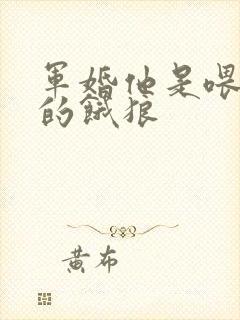 軍婚他是喂
的餓狼
黃布